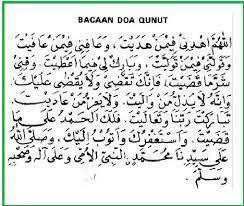 BACAAN DOA QUNUT
اَللّٰهُمَّ اهْدِنِيْ فِيْمَنْ هَدَيْتَ ، وَعَافِنِيْ فِيْمَنْ عَافَيْتَ
وَتَوَلَّنِيْ فِيْمَنْ تَوَلَّيْتَ ، وَبَارِكْ لِيْ فِيْمَا اَعْطَيْتَ ، وَقِنِيْ
شَرَّمَا قَضَيْتَ ، فَاِنَّكَ تَقْضِيْ وَلَا يُقْضٰى عَلَيْكَ
وَاِنَّهُ لَا يَذِلُّ مَنْ وَالَيْتَ ، وَلَا يَعِزُّ مَنْ عَادَيْتَ
تَبَارَكْتَ رَبَّنَا وَتَعَالَيْتَ ، فَلَكَ الْحَمْدُ عَلٰى مَا
قَضَيْتَ ، وَاَسْتَغْفِرُكَ وَاَتُوْبُ اِلَيْكَ ، وَصَلَّى اللهُ
عَلٰى سَيِّدِنَا مُحَمَّدٍ النَّبِيِّ الْاُمِّيِّ وَعَلٰى اٰلِهِ وَصَحْبِهِ
وَسَلَّمَ